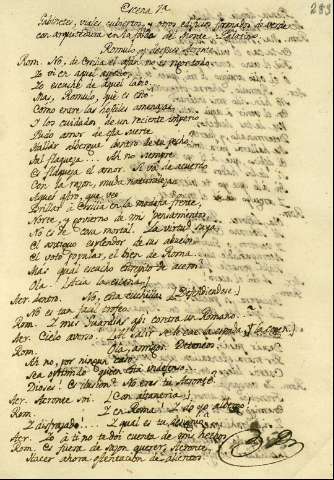 283
Escena 7ª
Gabinetes, viales cubiertos, y otros edificios formados de verde
con arquitectura en la falda de Monte Palatino.
Romulo, y despues Acronte.
Rom. No, de Ersilia el afan no es injustado.
Lo vi en aquel aspecto,
Lo escuché de aquel labio.
Mas, Romulo, qué es esto?
Como entre las hostiles amenazas,
Y los cuidados de un reciente imperio
Pudo amor de esta suerte
Hallar albergue dentro de tu pecho?
Tal flaqueza.... Ah no siempre
Es flaqueza el amor. Si va de acuerdo
Con la razon, muda naturaleza.
Aquel astro, que veo
Brillar à Ersilia en la modesta frente,
Norte, y govierno de mis pensamientos
No es de cosa mortal. La virtud suya
El antiguo esplendor de sus abuelos
El voto popular, el bien de Roma
Mas qual escucho estrepito de aceros!
Ola. (Acia la escena)
Acr. dentro. No, esta cuchilla (Defendiendose.)
No es tan facil trofeo.
Rom. I mis Guardias assi contra un Romano....
Acr. Cielo averso.
Rom. Ola, amigos. Deteneos.
Ah no, por ningun caso
Sea oprimido quien está indefenso.
Dioses! Es ilusion? No eres tu Acronte?
Acr. Acronte soi. (Con altaneria)
Rom. I en Roma!
I disfrazado.... I qual es tu designio
Acr. Io à ti no te doi cuenta de mis hechos
Rom. Es fuera de sazon querer, Acronte,
Hacer ahora ostentacion de alientos